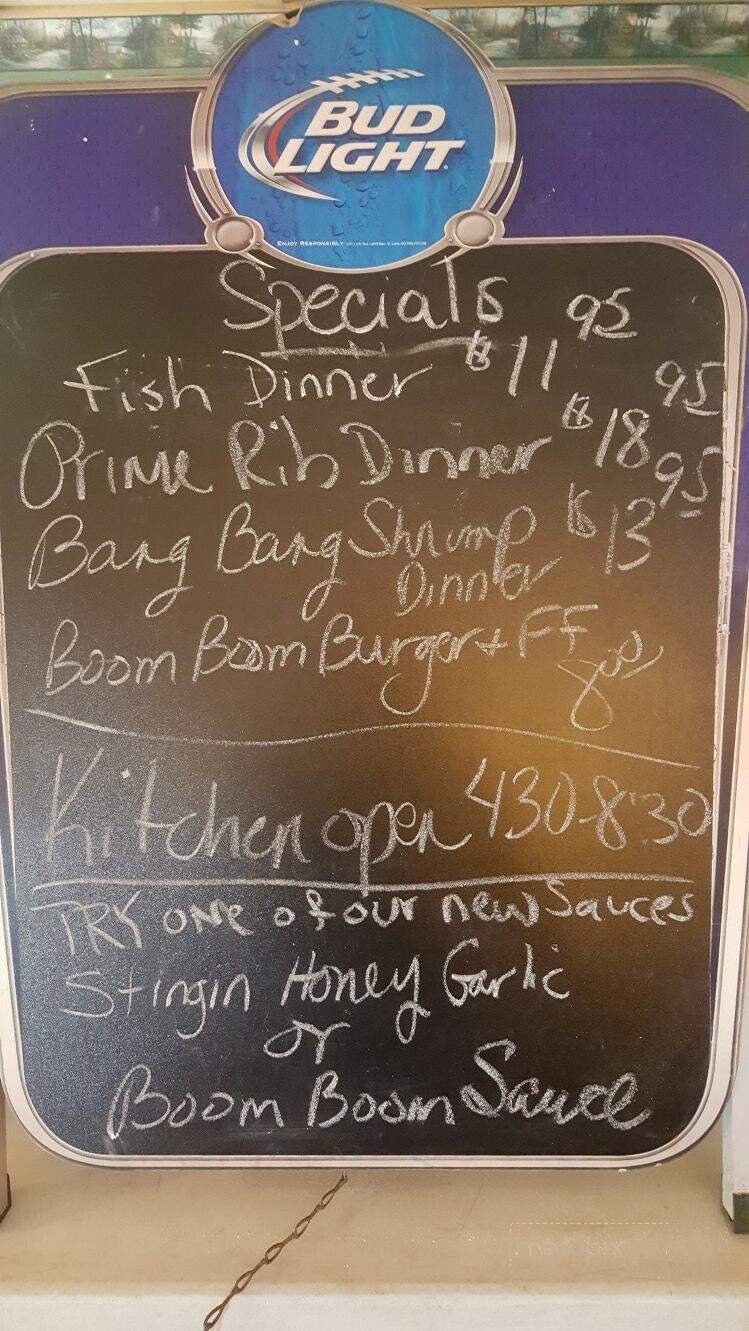 BUD
LIGHT
ENJOY RESPONSIBLY
Specials
Fish Dinner $11 95
Prime Rib Dinner $18 95
Bang Bang Shrimp $13 95
Dinner
Boom Boom Burger + FF 8 00
Kitchen open 430-830
TRY one of our new Sauces
Stingin Honey Garlic
or
Boom Boom Sauce